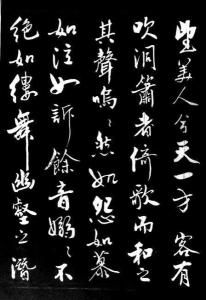 望美人兮天一方 客有
吹洞簫者倚歌而和之
其聲嗚〻然如怨如慕
如泣如訴餘音嫋〻不
絕如縷舞幽壑之潛